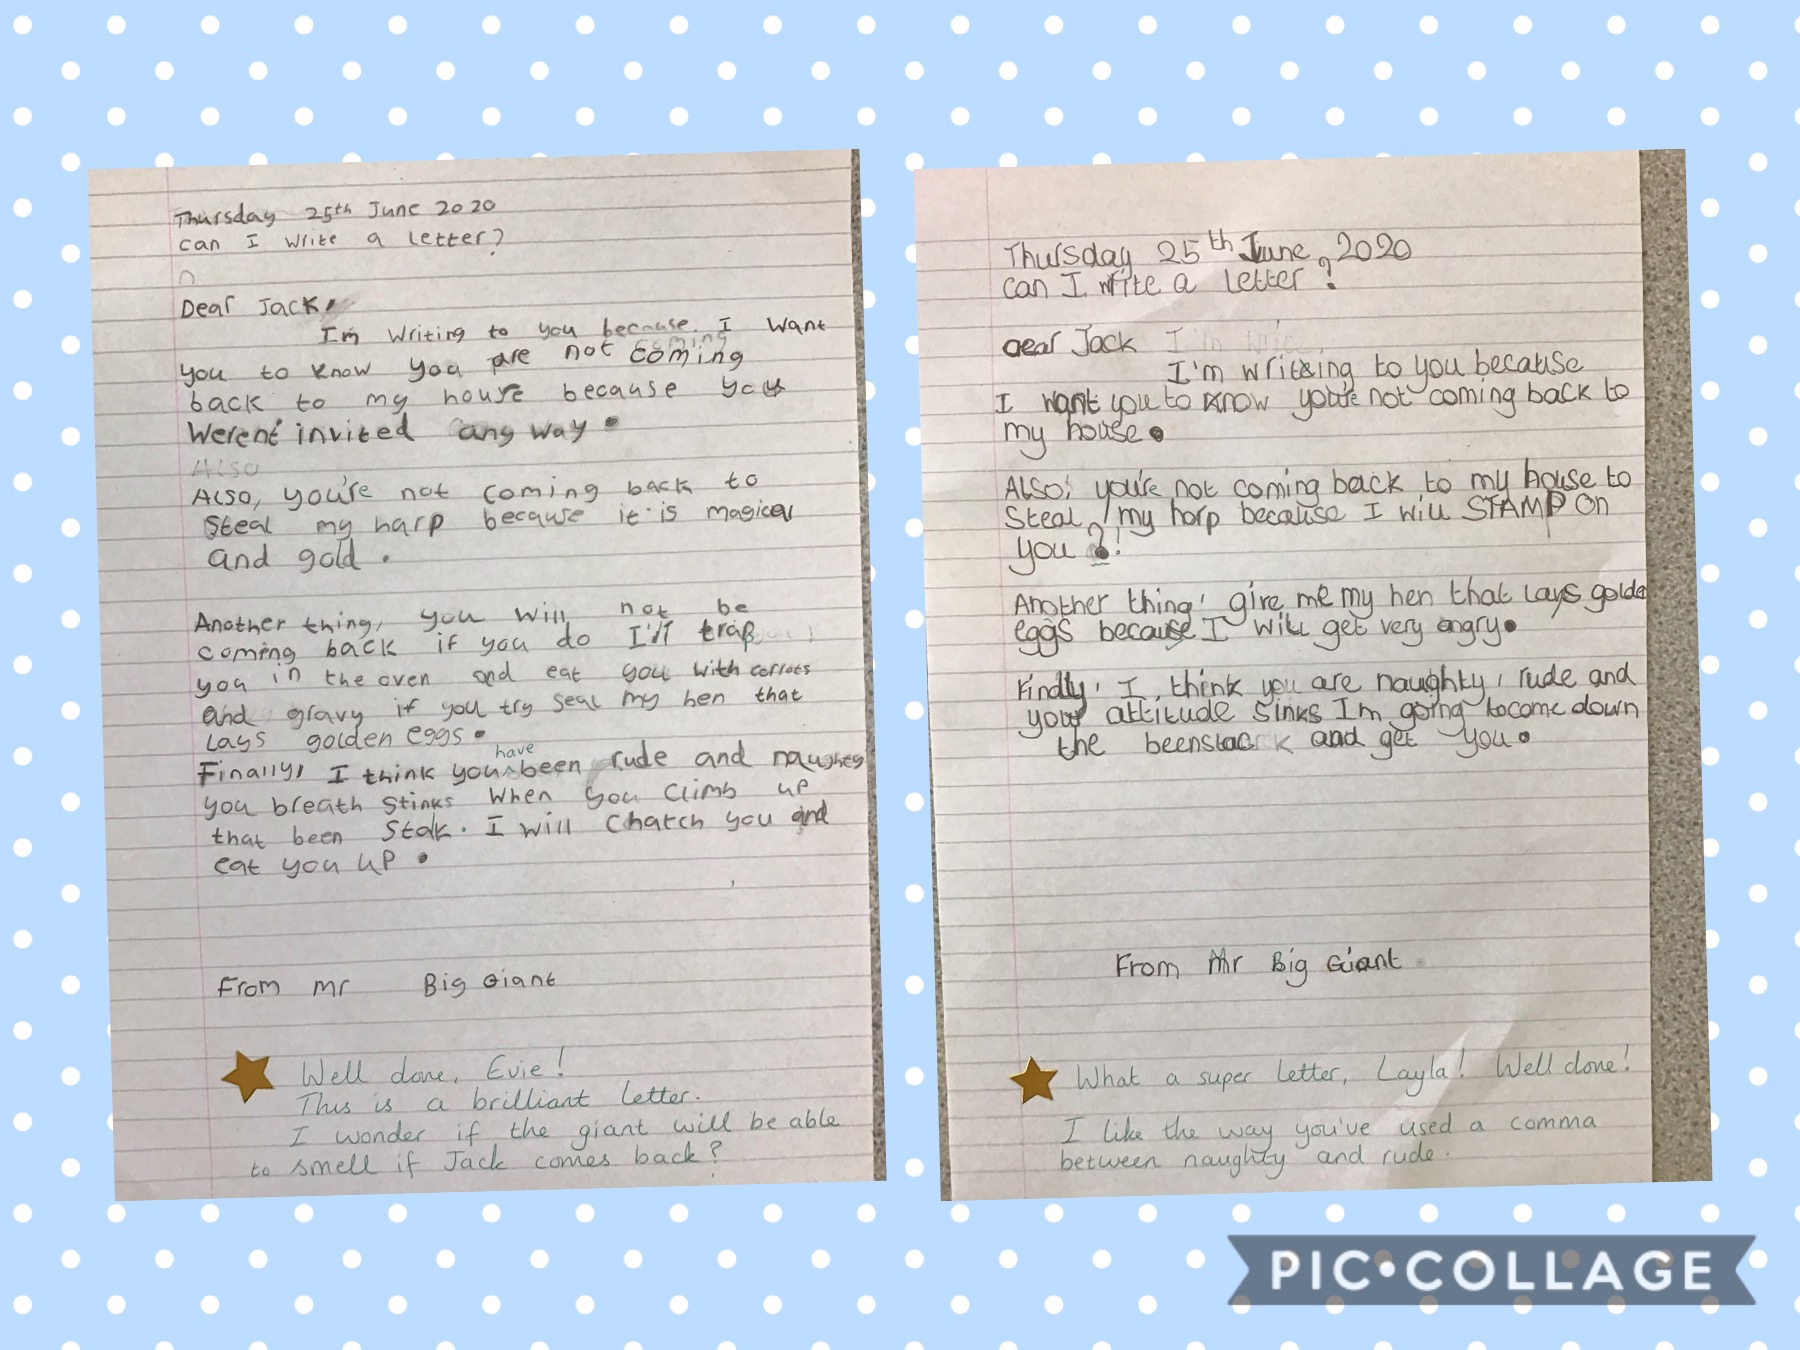 Thursday 25th June 2020
can I write a letter?
Dear Jack,
Im writing to you because I want
you to know you are not coming
back to my house because you
werent' invited any way.
Also
Also, you're not coming back to
steal my harp because it is magical
and gold.
Another thing, you will not be
coming back if you do I'll trap
you in the oven and eat you with carrots
and gravy if you try seal my hen that
lays golden eggs.
Finally, I think you have been rude and naughty
you breath stinks when you climb up
that been stalk. I will chatch you and
eat you up.
From mr Big Giant
Well done, Evie!
This is a brilliant letter.
I wonder if the giant will be able
to smell if Jack comes back?
Thursday 25th June 2020
can I write a letter?
dear Jack
I'm writing to you because
I want you to know you're not coming back to
my house.
Also, you're not coming back to my house to
steal my harp because I will STAMP on
you!
Another thing, give me my hen that lays golden
eggs because I will get very angry.
Finally, I think you are naughty, rude and
your attitude sinks I'm going to come down
the beenstack and get you.
From Mr Big Giant
What a super letter, Layla! Well done!
I like the way you've used a comma
between naughty and rude.
PIC•COLLAGE